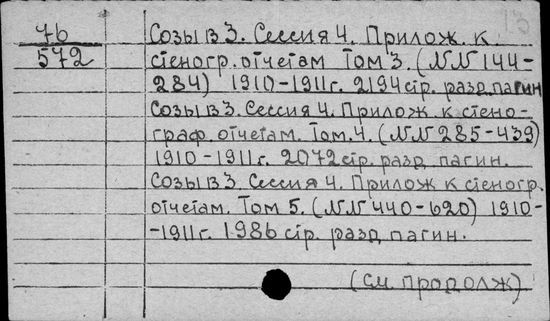 13
7б
572
Созыв 3. Сессия 4. Прилож. к
стеногр. отчетам Том 3. (NN 144-
284) 1910-1911г. 2194 стр. разд. пагин
Созыв 3. Сессия 4. Прилож к стено-
граф. отчетам. Том. 4. (NN 285-439)
1910-1911г. 2072 стр. разд. пагин.
Созыв 3. Сессия 4. Прилож к стеногр.
отчетам. Том 5. (NN 440-620) 1910-
-1911г. 1986 стр. разд пагин.
(см. продолж)